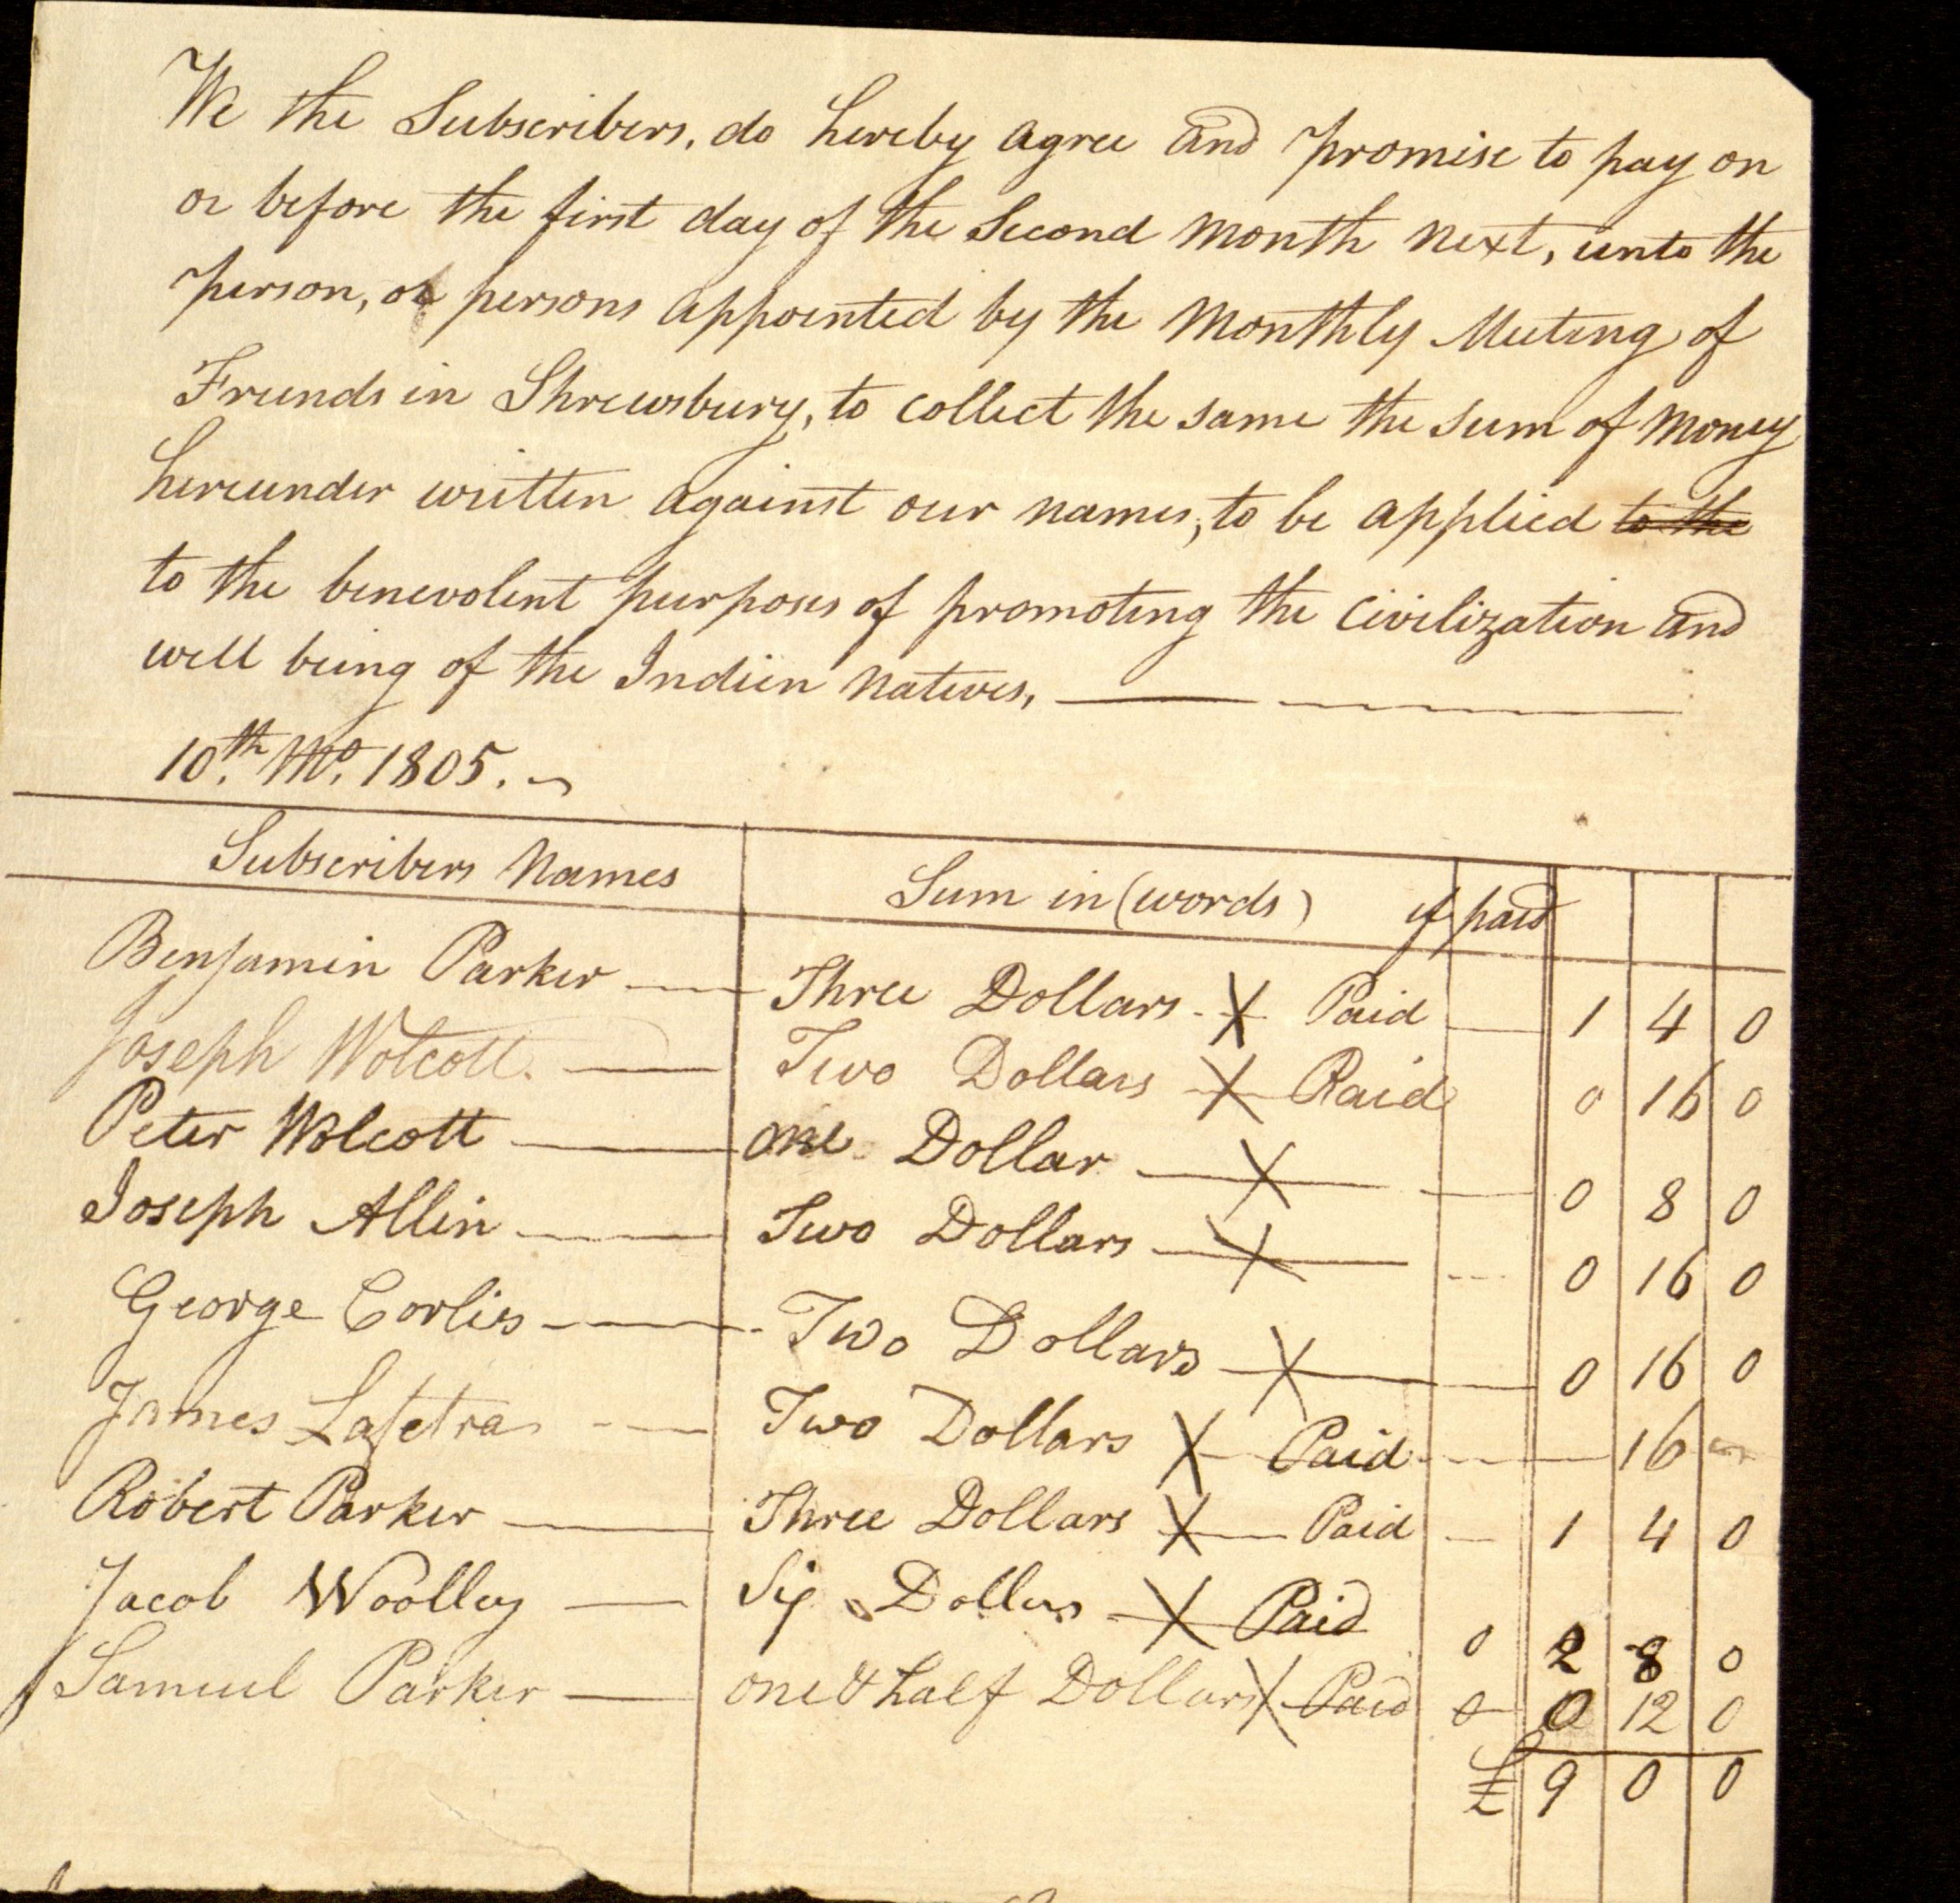 We the Subscribers, do hereby agree and promise to pay on
or before the first day of the Second Month next, unto the
person, or persons appointed by the Monthly Meeting of
Friends in Shrewsbury, to collect the same the sum of Money
hereunder written against our names, to be applied to the
to the benevolent purposes of promoting the Civilization and
well being of the Indien natives,
10th Mo. 1805.
Subscribers Names Sum in (words) if paid
Benjamin Parker Three Dollars X Paid 1 4 0
Joseph Wolcott. Two Dollars X Paid 0 16 0
Peter Wolcott one Dollar X 0 8 0
Joseph Allin Two Dollars X 0 16 0
George Corlies Two Dollars X 0 16 0
James Lafetra Two Dollars X Paid 16
Robert Parker Three Dollars X Paid 1 4 0
Jacob Woolley Six Dollers X Paid 0 2 8 0
Samuel Parker one & half Dollars X Paid 0 0 12 0
£ 9 0 0